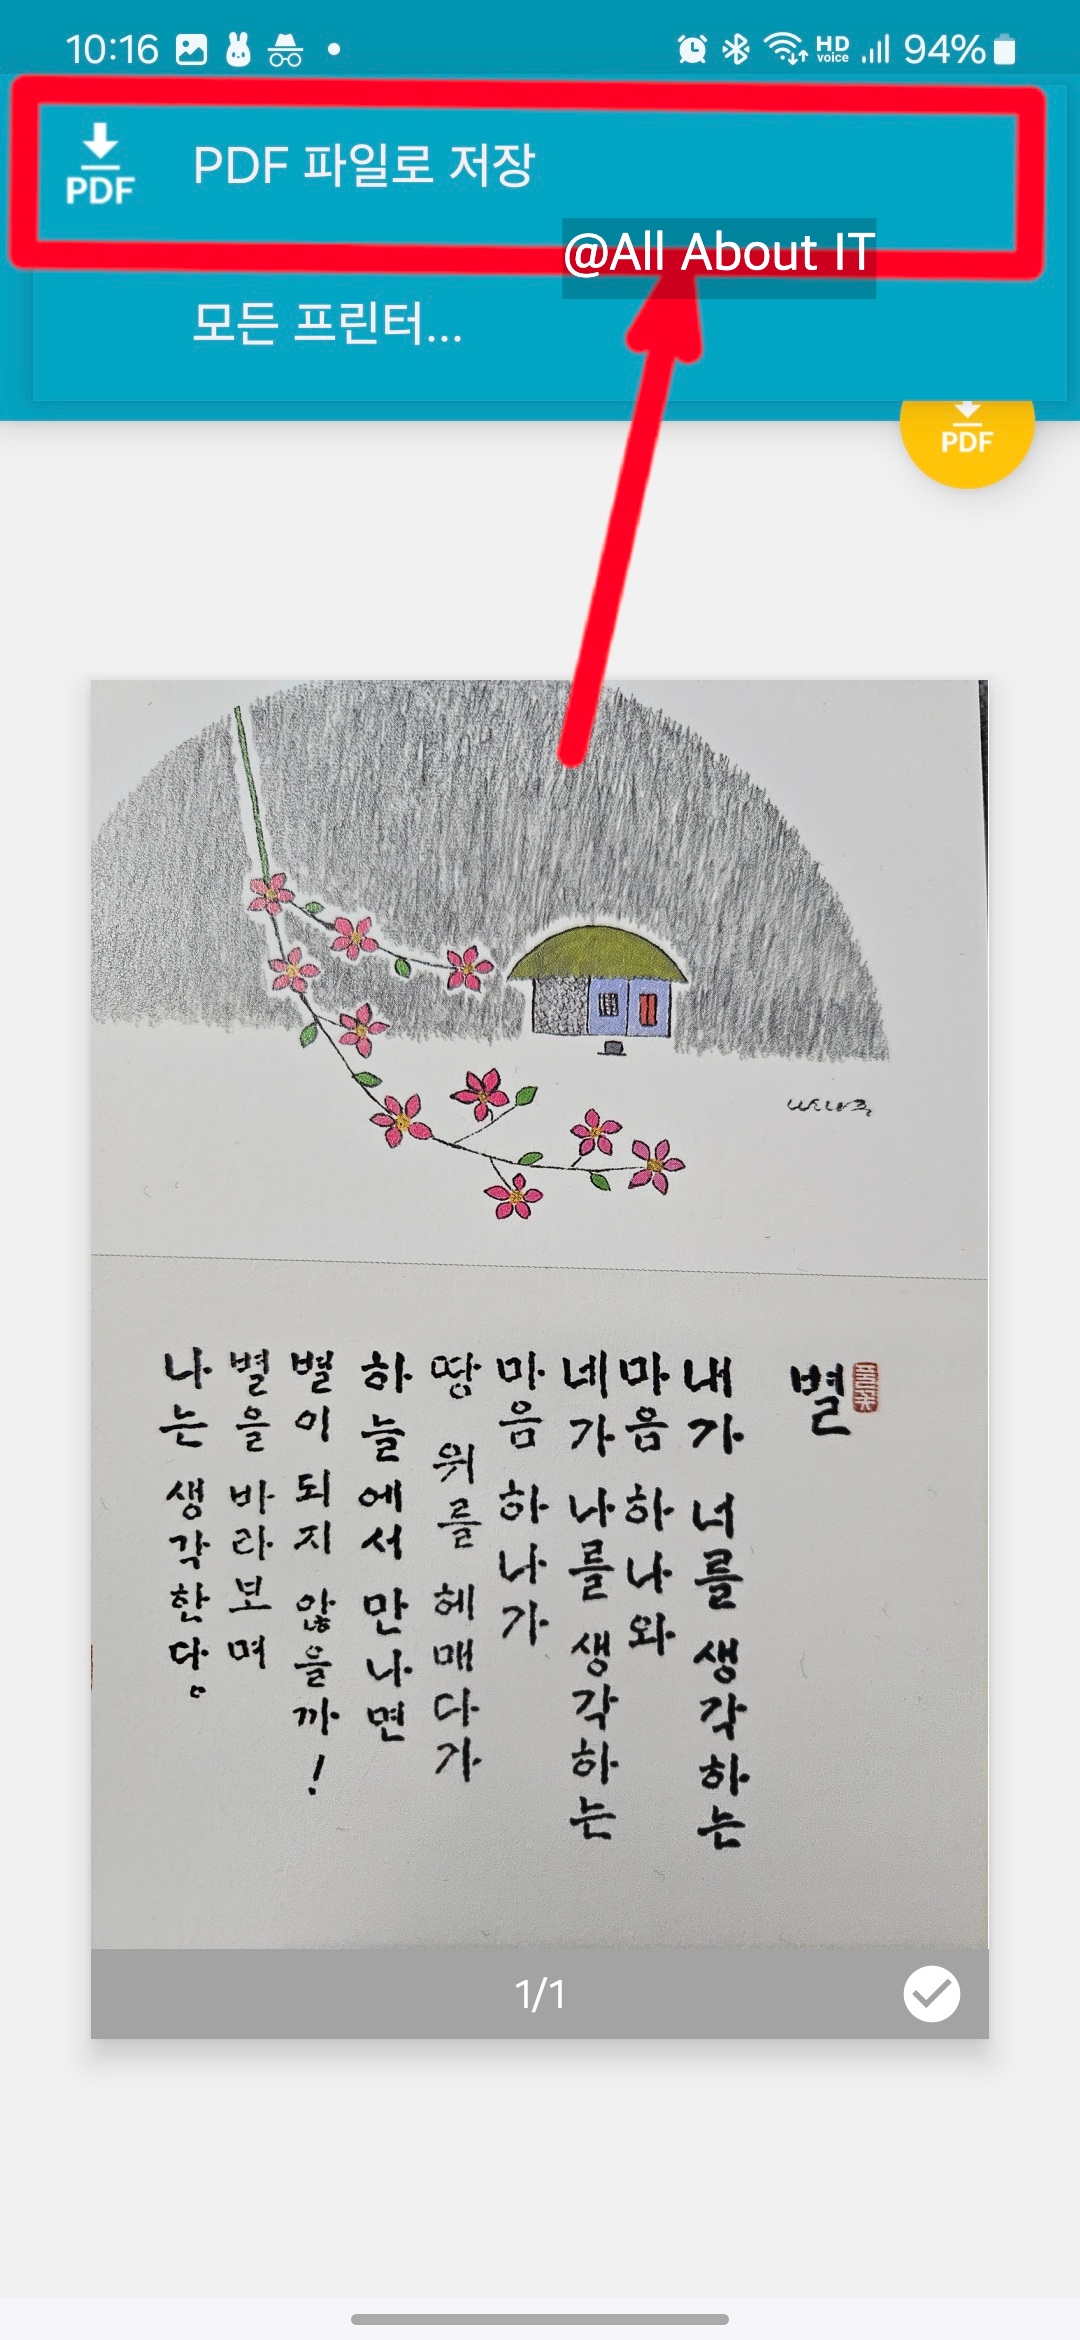 10:16
HD voice
94%
PDF
PDF 파일로 저장
@All About IT
모든 프린터...
PDF
별
내가 너를 생각하는
마음 하나와
네가 나를 생각하는
마음 하나가
땅 위를 헤매다가
하늘에서 만나면
별이 되지 않을까!
별을 바라보며
나는 생각한다.
1/1